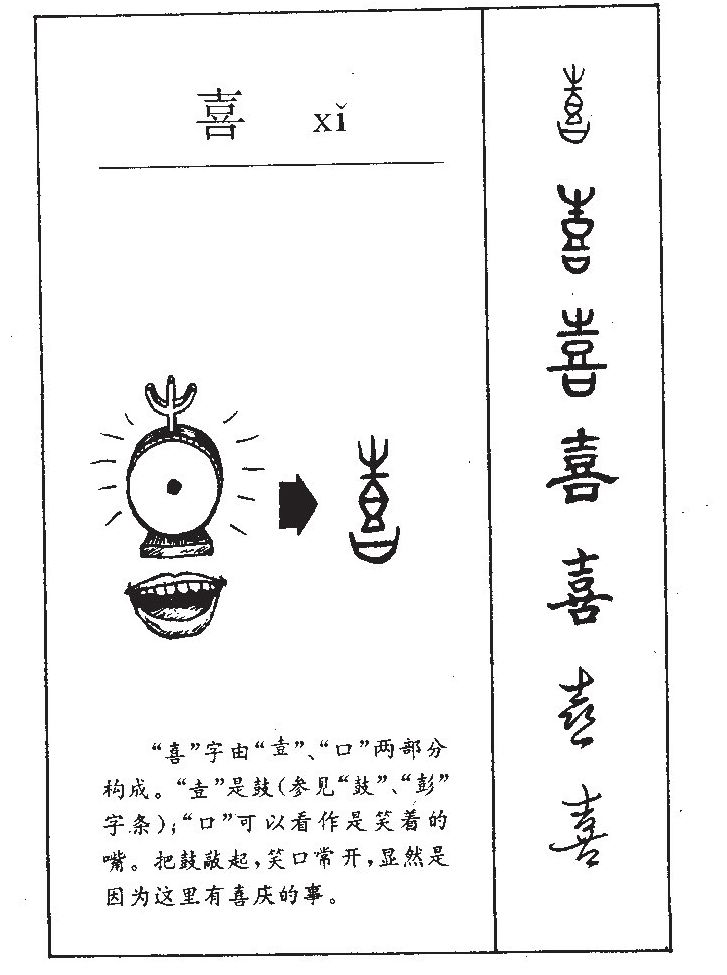 喜 xǐ
“喜”字由“壴”、“口”两部分
构成。“壴”是鼓(参见“鼓”、“彭”
字条);“口”可以看作是笑着的
嘴。把鼓敲起,笑口常开,显然是
因为这里有喜庆的事。
喜
喜
喜
喜
喜
喜
喜
喜